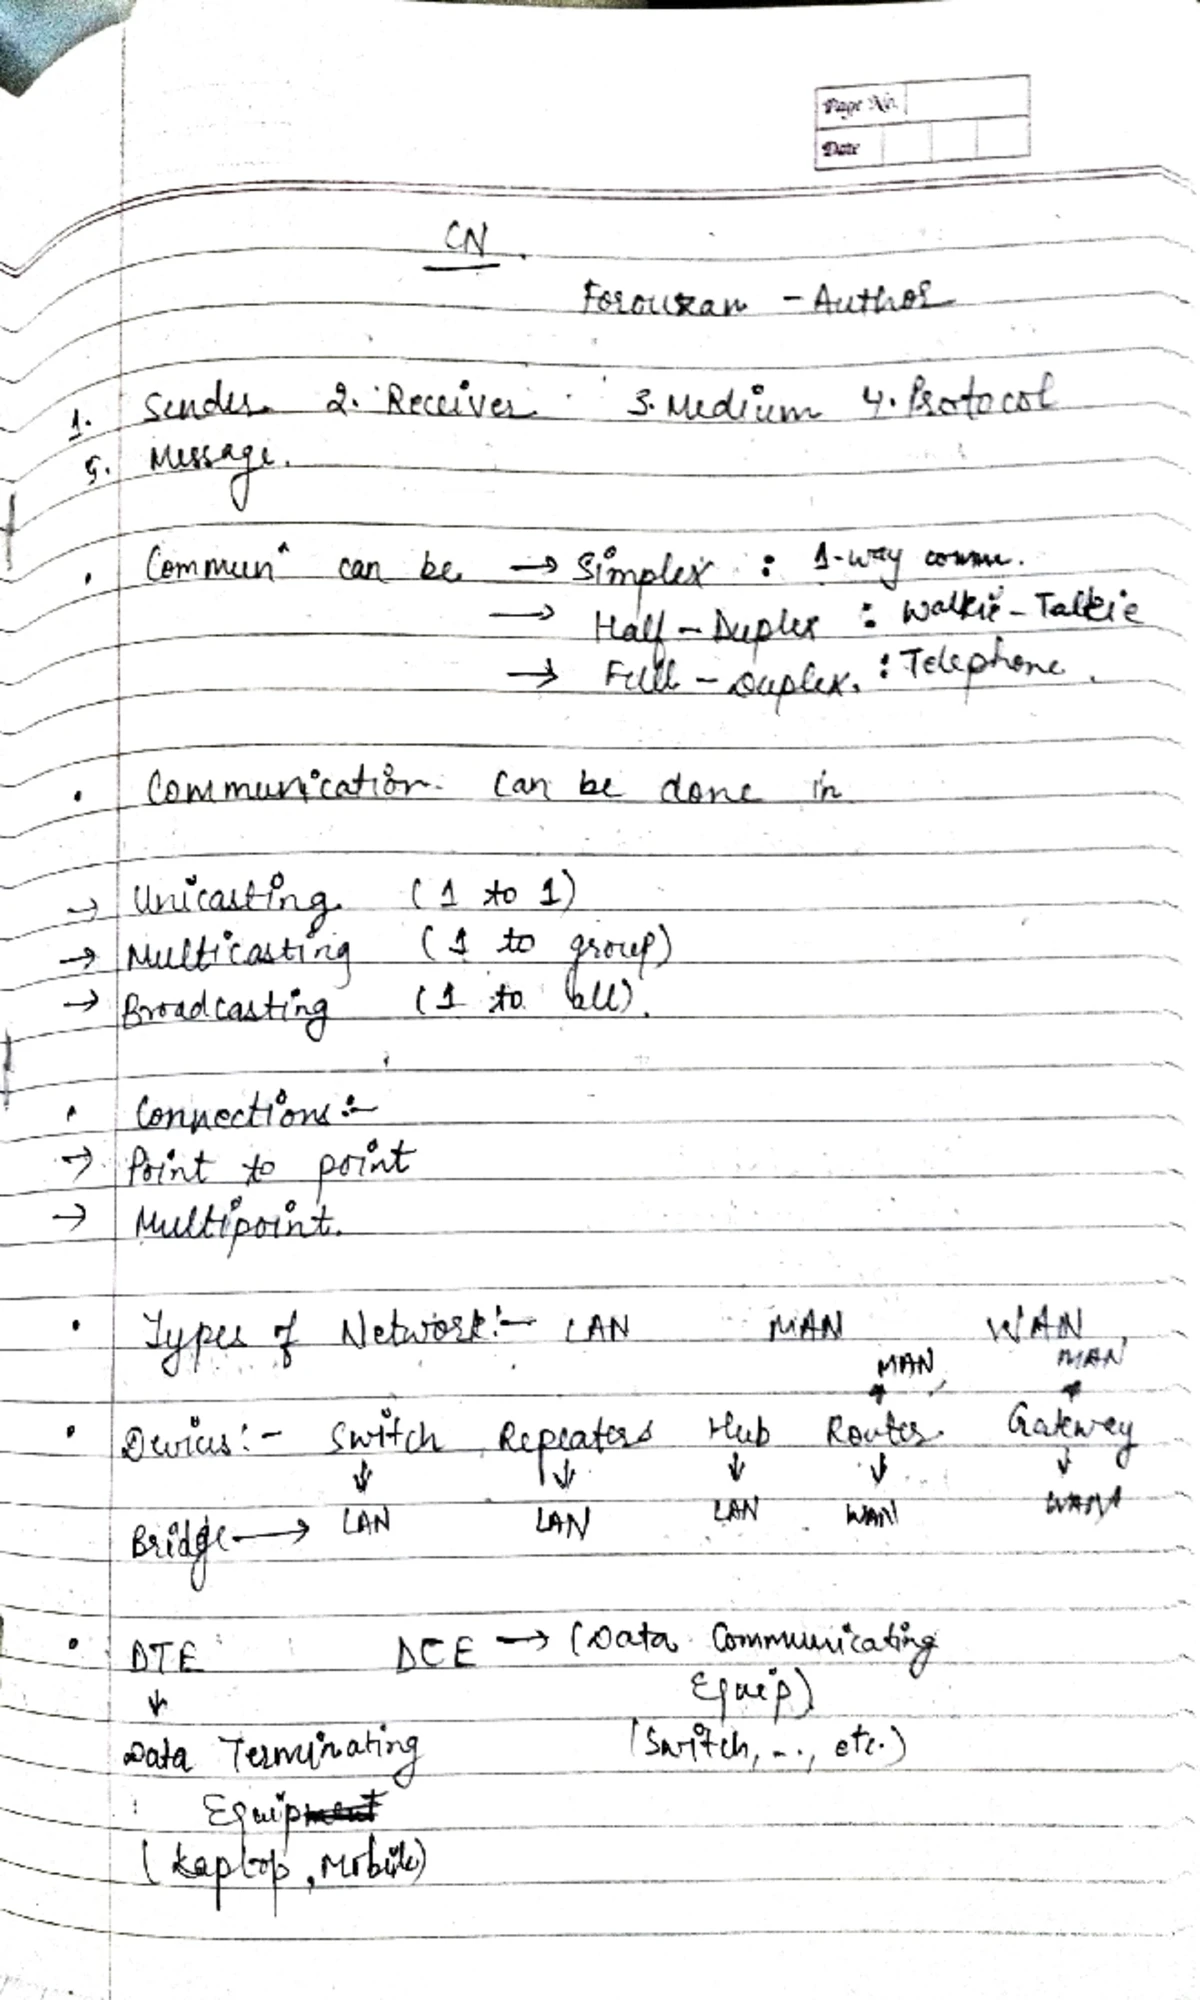 Page No.
Date
CN.
Forouzan - Author
1. Sender 2. Receiver 3. Medium 4. Protocol
5. Message.
• Commun^ can be → Simplex : 1-way commu.
→ Half-Duplex : Walkie-Talkie
→ Full-Duplex. : Telephone.
• Communication can be done in
→ Unicasting (1 to 1)
→ Multicasting (1 to group)
→ Broadcasting (1 to all).
• Connections :-
→ Point to point
→ Multipoint.
• Types of Network:- LAN MAN WAN,
MAN, MAN
• Devices:- Switch Repeaters Hub Router Gateway
Bridge → LAN LAN LAN WAN WAN
• DTE DCE → (Data Communicating
Equip)
Data Terminating (Switch, ..., etc.)
Equip
(Laptop, Mobile)